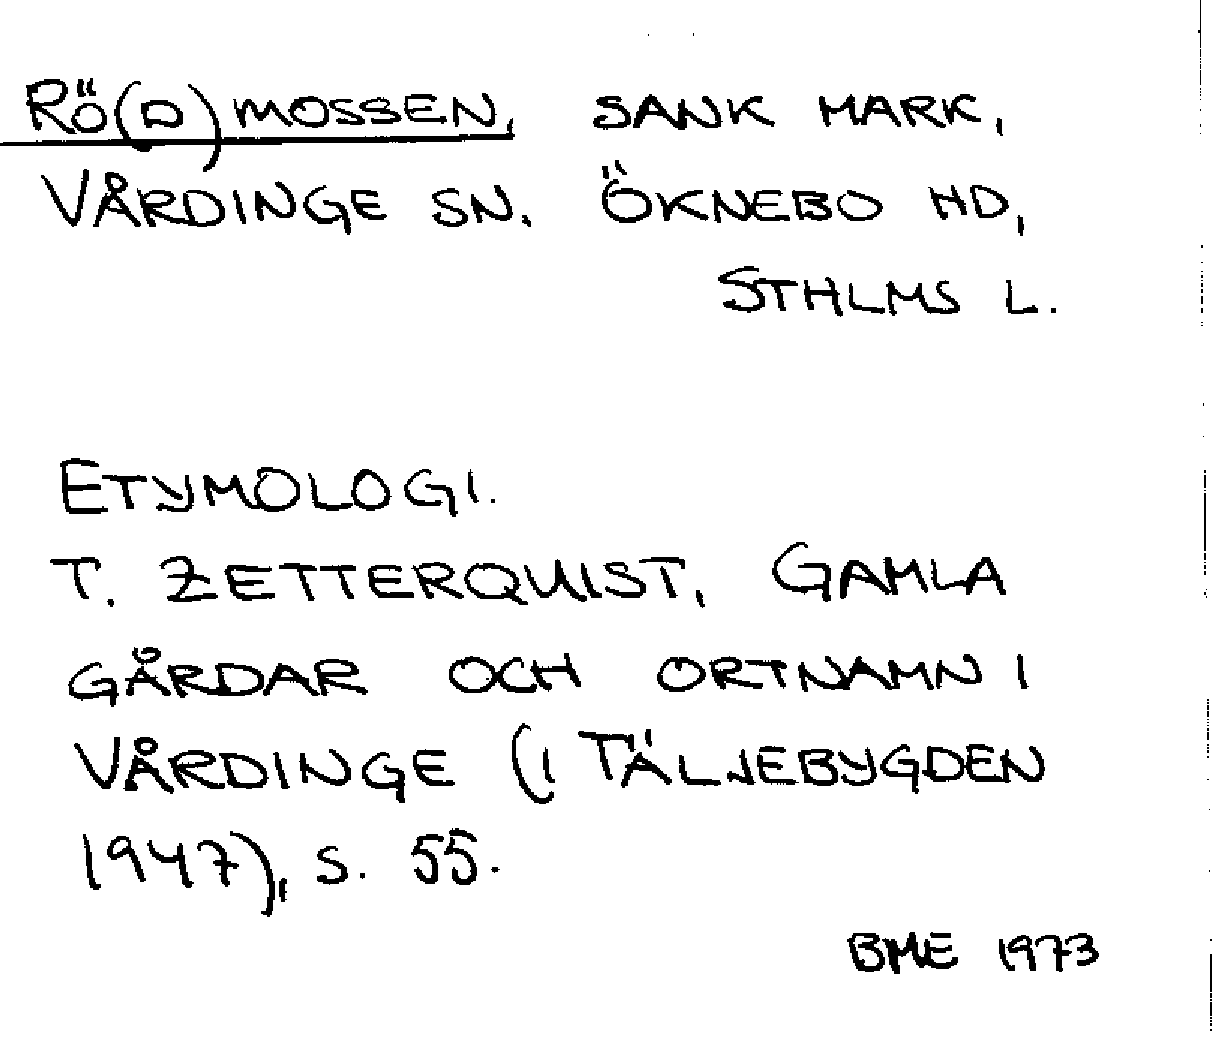 RÖ(D)MOSSEN, SANK MARK,
VÅRDINGE SN. ÖKNEBO HD,
STHLMS L.
ETYMOLOGI.
T. ZETTERQUIST, GAMLA
GÅRDAR OCH ORTNAMN I
VÅRDINGE (I TÄLJEBYGDEN
1947), S. 55.
BME 1973